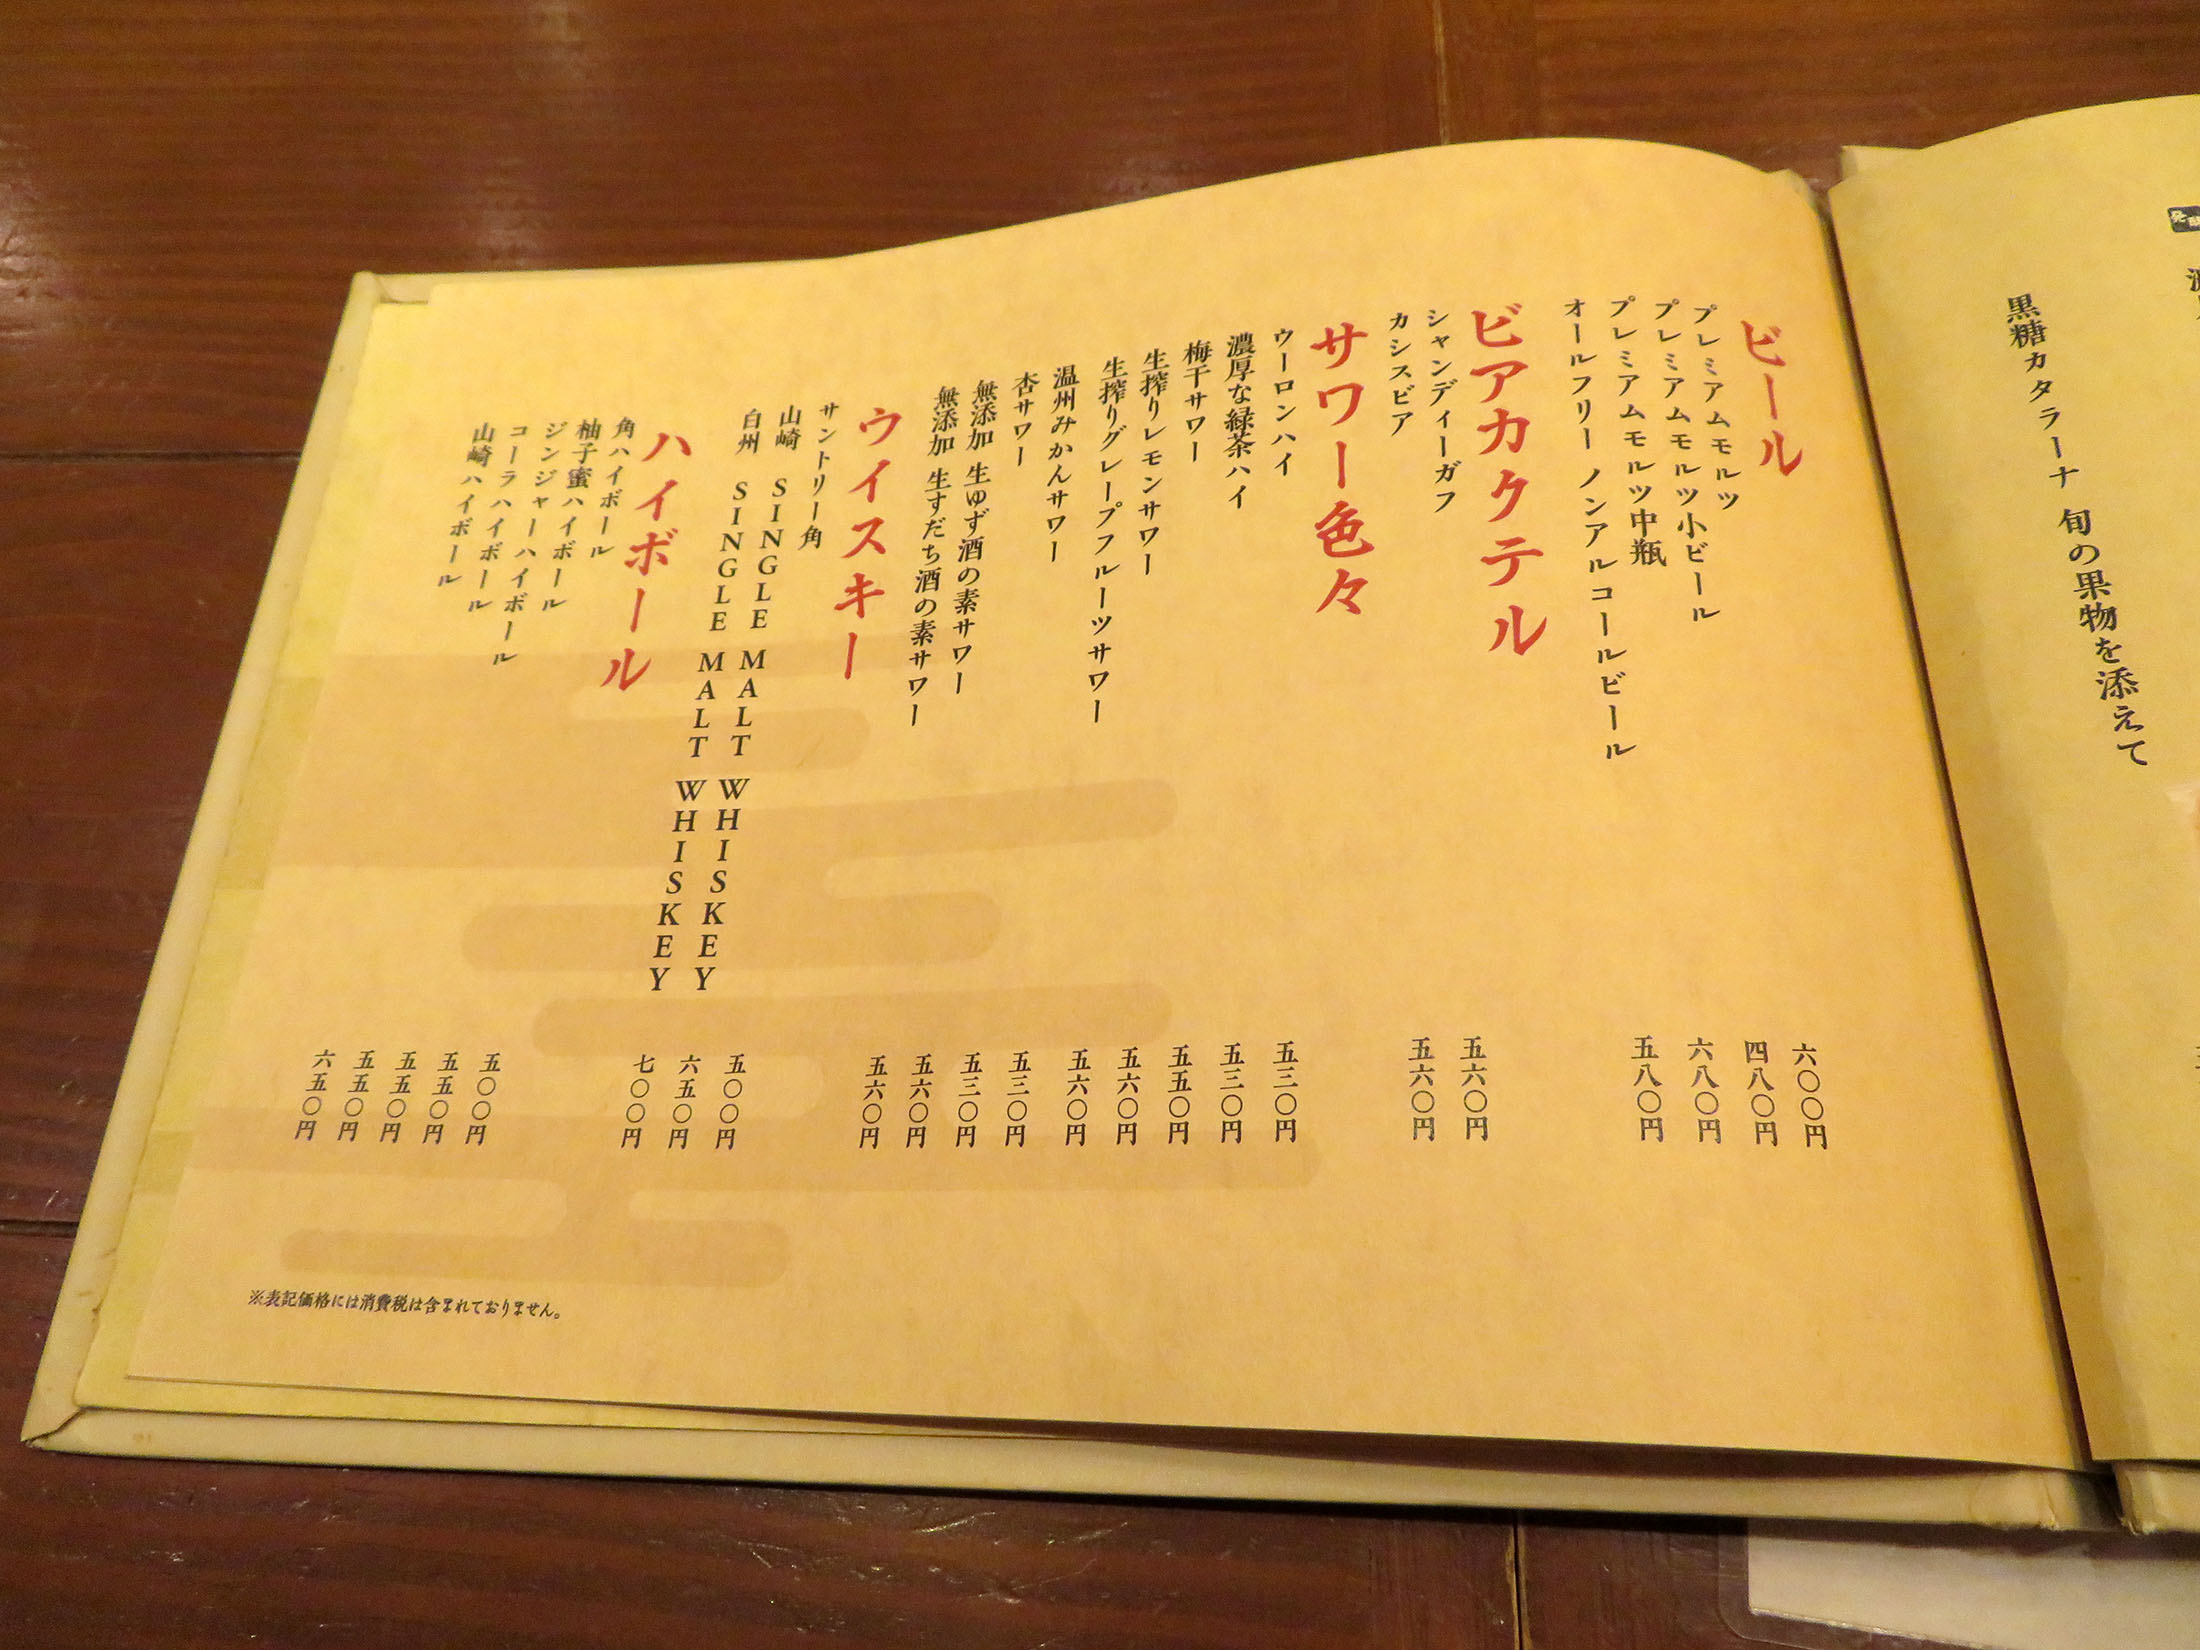 黒糖カタラーナ 旬の果物を添えて
ビール
プレミアムモルツ 六〇〇円
プレミアムモルツ小ビール 四八〇円
プレミアムモルツ中瓶 六八〇円
オールフリー ノンアルコールビール 五八〇円
ビアカクテル
シャンディーガフ 五六〇円
カシスビア 五六〇円
サワー色々
ウーロンハイ 五三〇円
濃厚な緑茶ハイ 五三〇円
梅干サワー 五五〇円
生搾りレモンサワー 五六〇円
生搾りグレープフルーツサワー 五六〇円
温州みかんサワー 五三〇円
杏サワー 五三〇円
無添加 生ゆず酒の素サワー 五六〇円
無添加 生すだち酒の素サワー 五六〇円
ウイスキー
サントリー角 五〇〇円
山崎 SINGLE MALT WHISKEY 六五〇円
白州 SINGLE MALT WHISKEY 七〇〇円
ハイボール
角ハイボール 五〇〇円
柚子蜜ハイボール 五五〇円
ジンジャーハイボール 五五〇円
コーラハイボール 五五〇円
山崎ハイボール 六五〇円
※表記価格には消費税は含まれておりません。